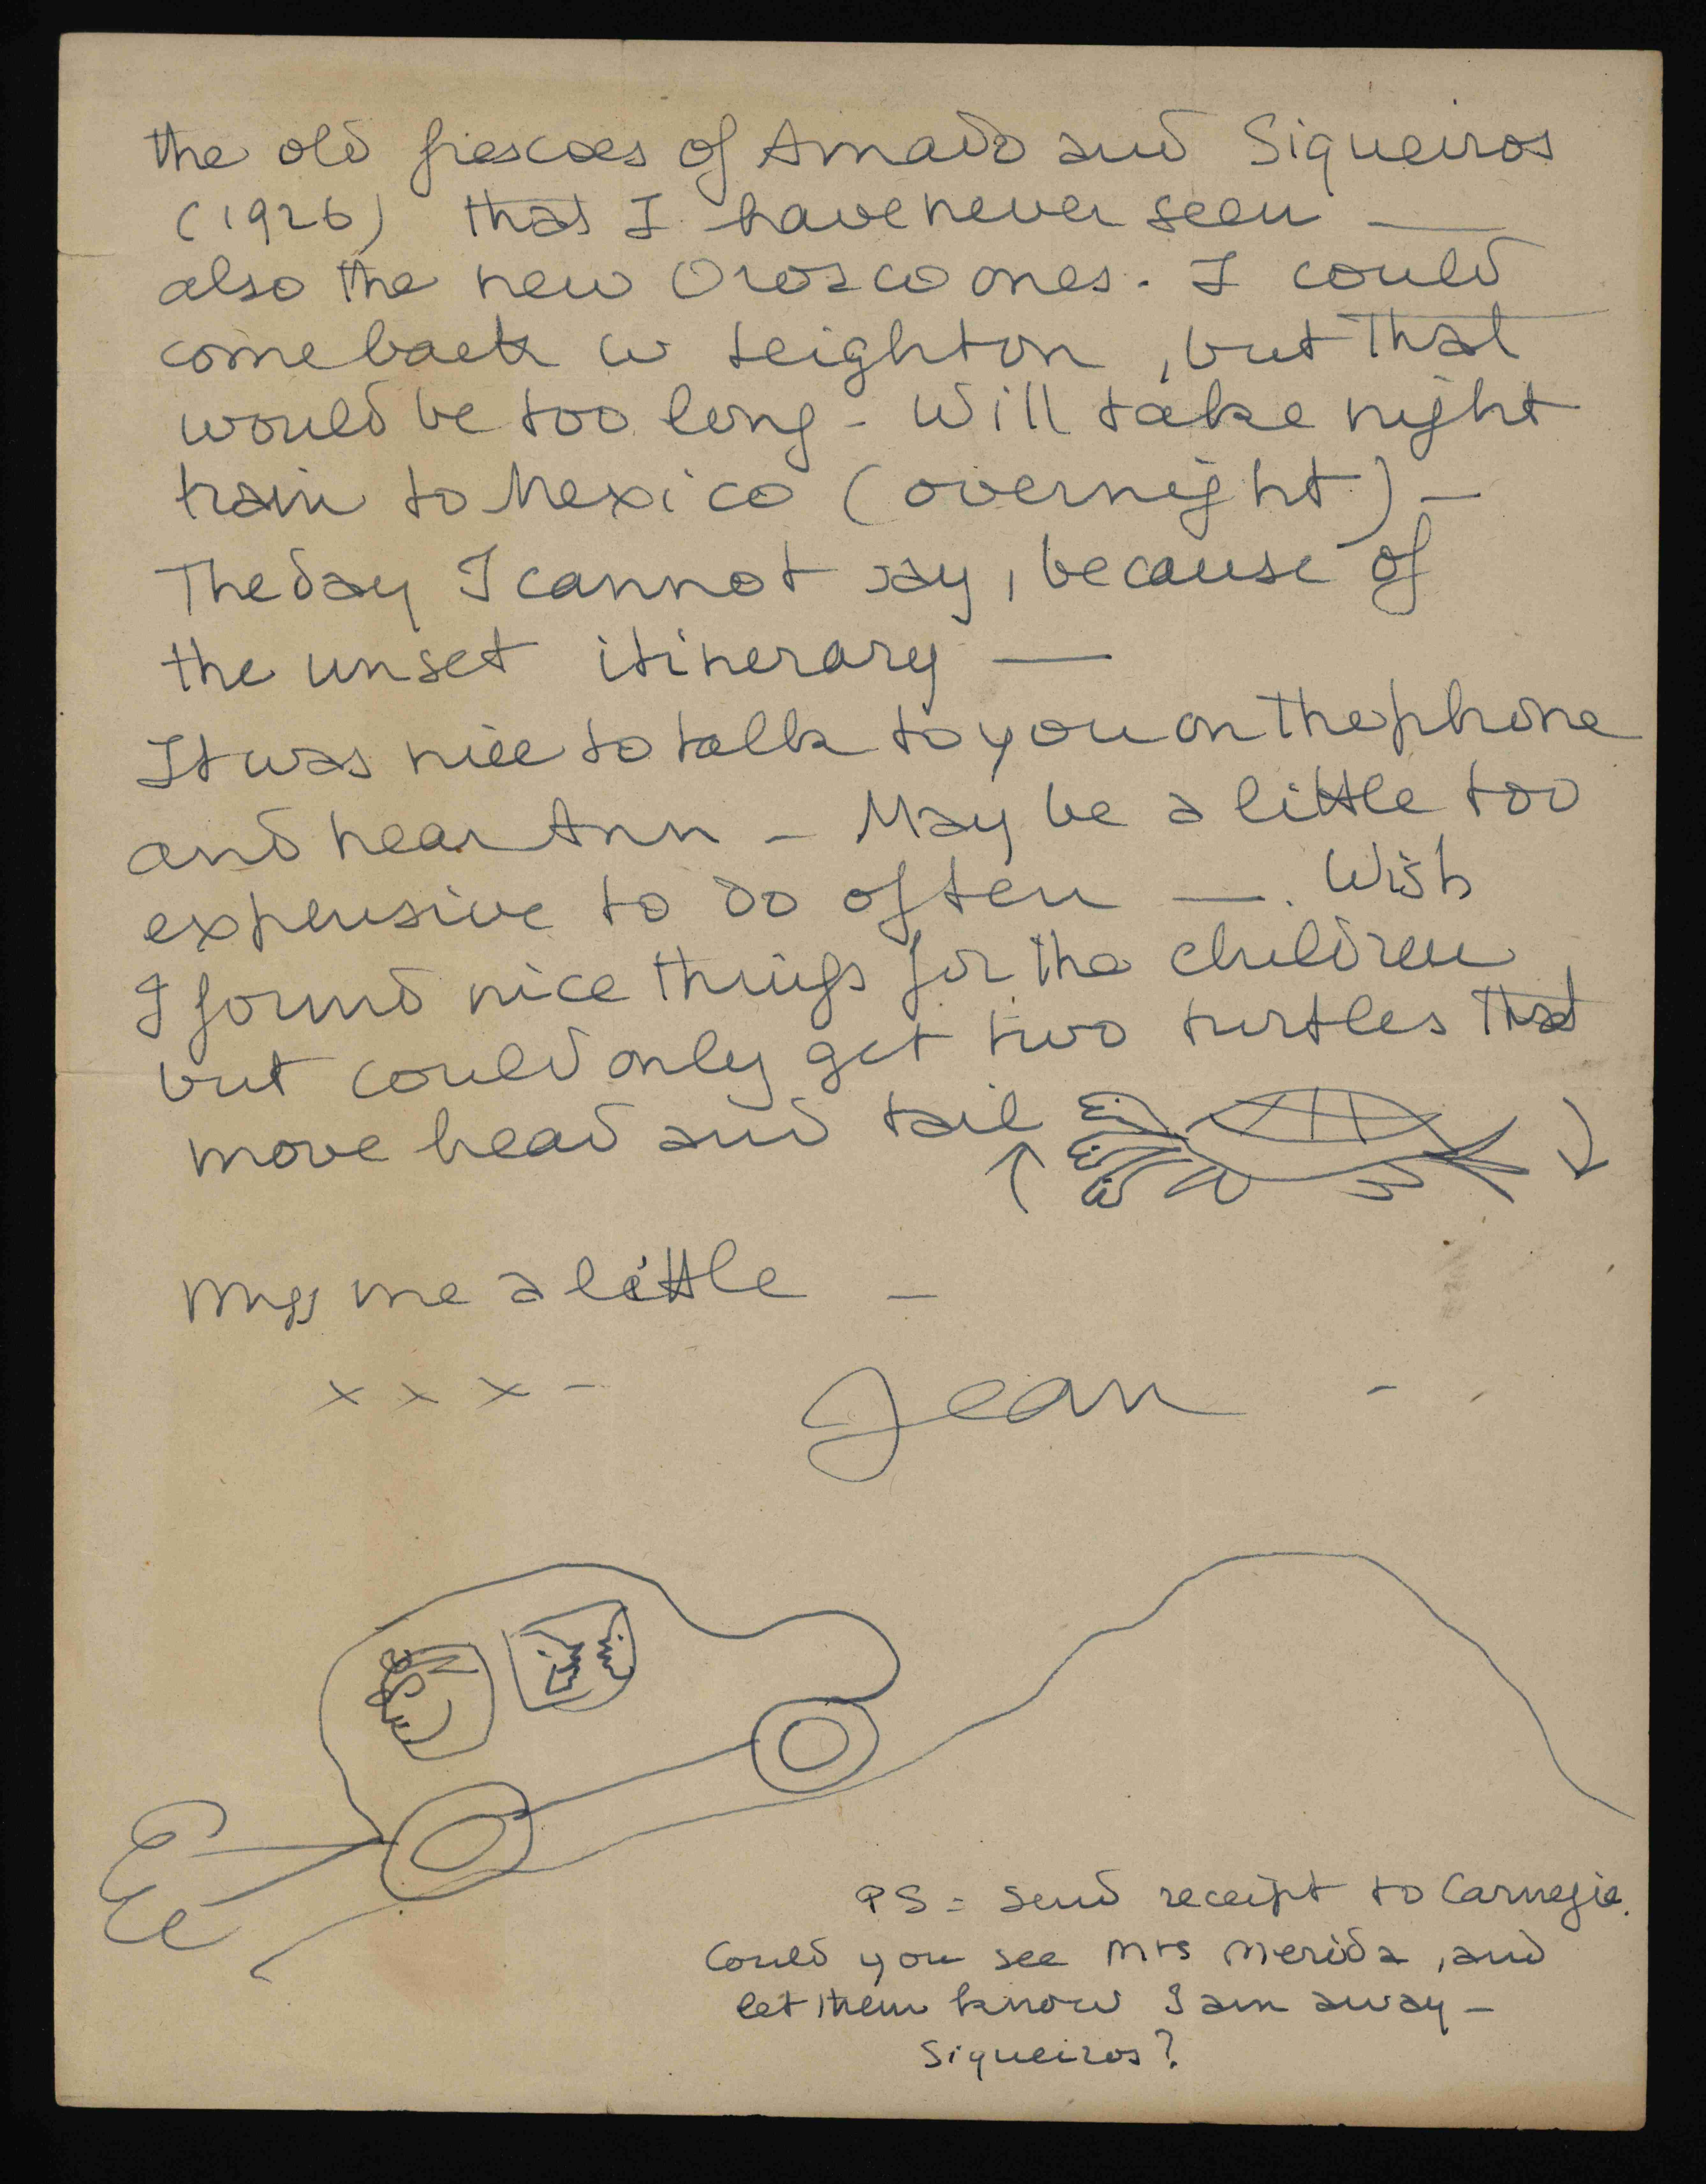 the old frescoes of Amado and Siqueiros
(1926) that I have never seen —
also the new Orozco ones. I could
come back w Leighton, but that
would be too long - Will take night
train to Mexico (overnight) —
The day I cannot say, because of
the unset itinerary —
It was nice to talk to you on the phone
and hear Ann - May be a little too
expensive to do often —. Wish
I found nice things for the children,
but could only get two turtles that
move head and tail
Miss me a little —
x x x - Jean -
PS = Send receipt to Carnegie.
Could you see Mrs Merida, and
let them know I am away -
Siqueiros?